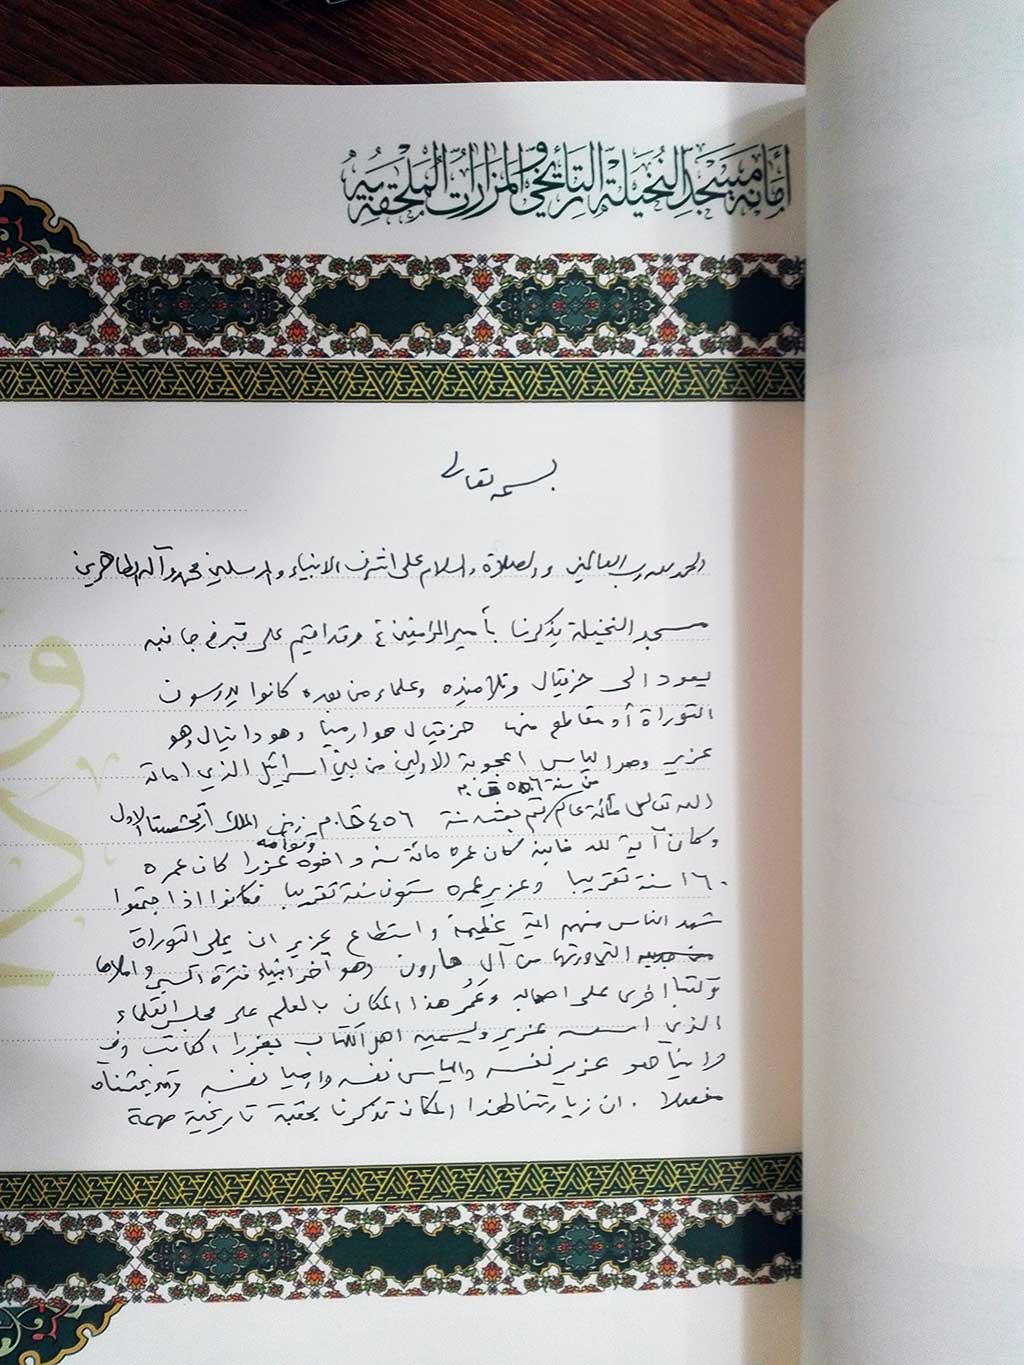 أمانة مسجد النخيلة التأريخي والمزارات الملحقة به
بسمه تعالى
الحمد لله رب العالمين والصلاة والسلام على اشرف الانبياء والمرسلين محمد وآله الطاهرين
مسجد النخيلة يذكرنا بأمير المؤمنين ع وقد اقيم على قبر في جانبه
يعود الى حزقيال وتلاميذه وعلماء من بعده كانوا يدرسون
التوراة أو مقاطع منها حزقيال هو ارميا وهو دانيال وهو
عزير وهو الياس اعجوبة الاولين من بني اسرائيل الذي اماته
من سنة ق.م
الله تعالى مائة عام ثم بعثه سنة ٤٥٦ ق.م زمن الملك الاول
وتوأمه
وكان آية لله كان عمره مائة سنة واخوه عزرا كان عمره
١٦٠ سنة تقريبا وعزير عمره ستون سنة تقريبا فكانوا اذا اجتمعوا
شهد الناس منهم آية عظيمة واستطاع عزير ان يملي التوراة
من آل هارون وهو آخر انبياء فترة السبي واملاها
اخرى على اصحابه وعمر هذا المكان بالعلم على مجلس العلماء
الذي اسسه عزير ويسميه اهل الكتاب بعزرا الكاتب وفي
هو عزير نفسه والياس نفسه وارميا نفسه وقد بحثناه
مفصلا . ان زيارتنا لهذا المكان تذكرنا بحقبة تاريخية مهمة